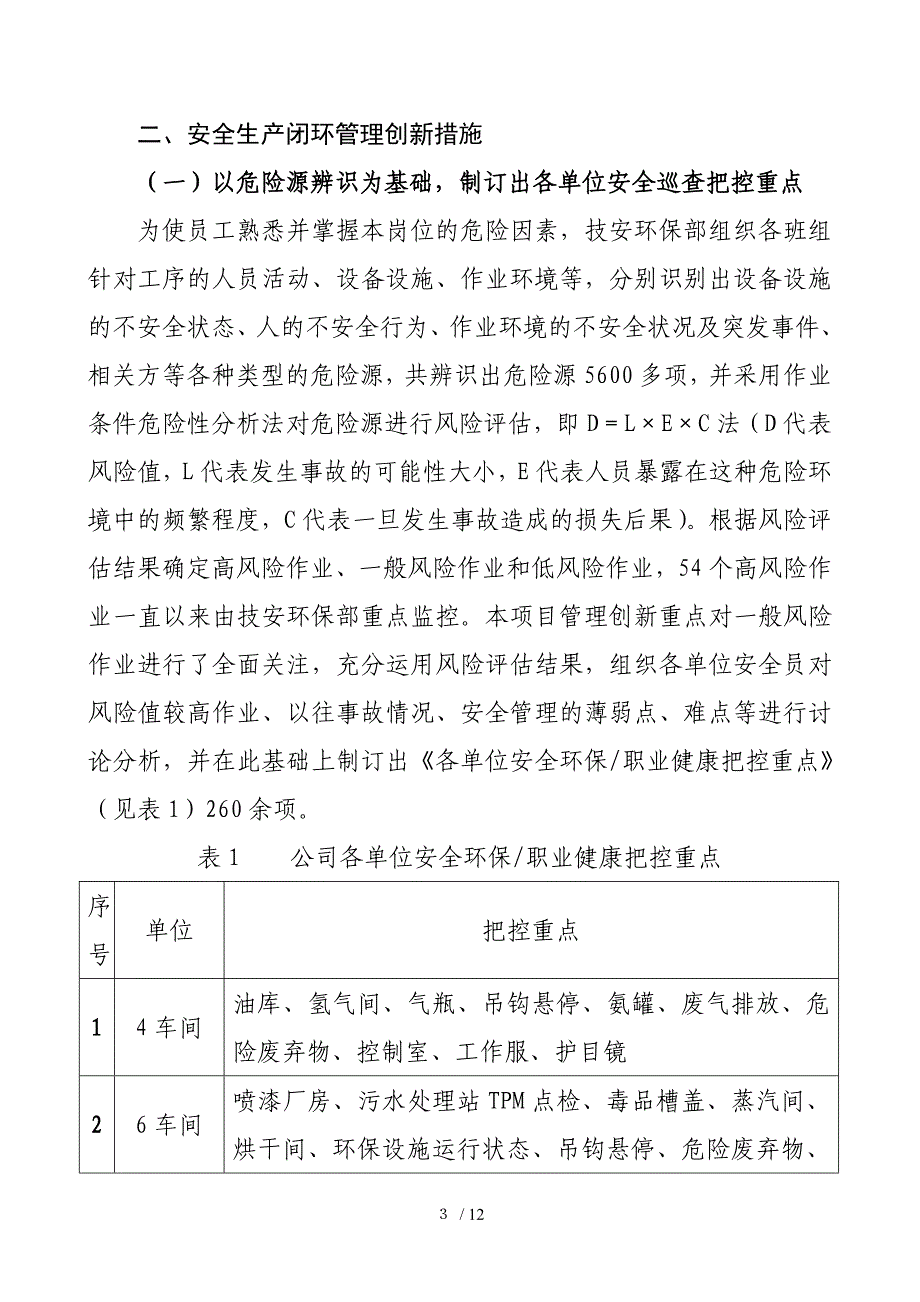 二、安全生产闭环管理创新措施
（一）以危险源辨识为基础，制订出各单位安全巡查把控重点
为使员工熟悉并掌握本岗位的危险因素，技安环保部组织各班组
针对工序的人员活动、设备设施、作业环境等，分别识别出设备设施
的不安全状态、人的不安全行为、作业环境的不安全状况及突发事件、
相关方等各种类型的危险源，共辨识出危险源 5600 多项，并采用作业
条件危险性分析法对危险源进行风险评估，即 D=L×E×C 法（D 代表
风险值，L 代表发生事故的可能性大小，E 代表人员暴露在这种危险环
境中的频繁程度，C 代表一旦发生事故造成的损失后果）。根据风险评
估结果确定高风险作业、一般风险作业和低风险作业，54 个高风险作
业一直以来由技安环保部重点监控。本项目管理创新重点对一般风险
作业进行了全面关注，充分运用风险评估结果，组织各单位安全员对
风险值较高作业、以往事故情况、安全管理的薄弱点、难点等进行讨
论分析，并在此基础上制订出《各单位安全环保/职业健康把控重点》
（见表 1）260 余项。
表 1 公司各单位安全环保/职业健康把控重点
序号 单位 把控重点
1 4 车间 油库、氢气间、气瓶、吊钩悬停、氨罐、废气排放、危
险废弃物、控制室、工作服、护目镜
2 6 车间 喷漆厂房、污水处理站 TPM 点检、毒品槽盖、蒸汽间、
烘干间、环保设施运行状态、吊钩悬停、危险废弃物、
3 / 12